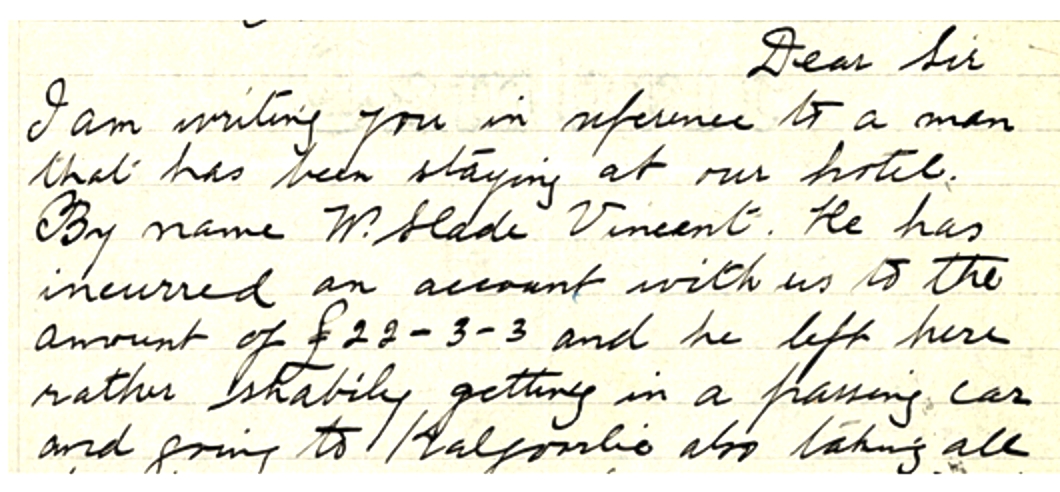 Dear Sir
I am writing you in reference to a man
that has been staying at our hotel.
By name W. Slade Vincent. He has
incurred an account with us to the
amount of £22-3-3 and he left here
rather shabily getting in a passing car
and going to Kalgoorlie also taking all